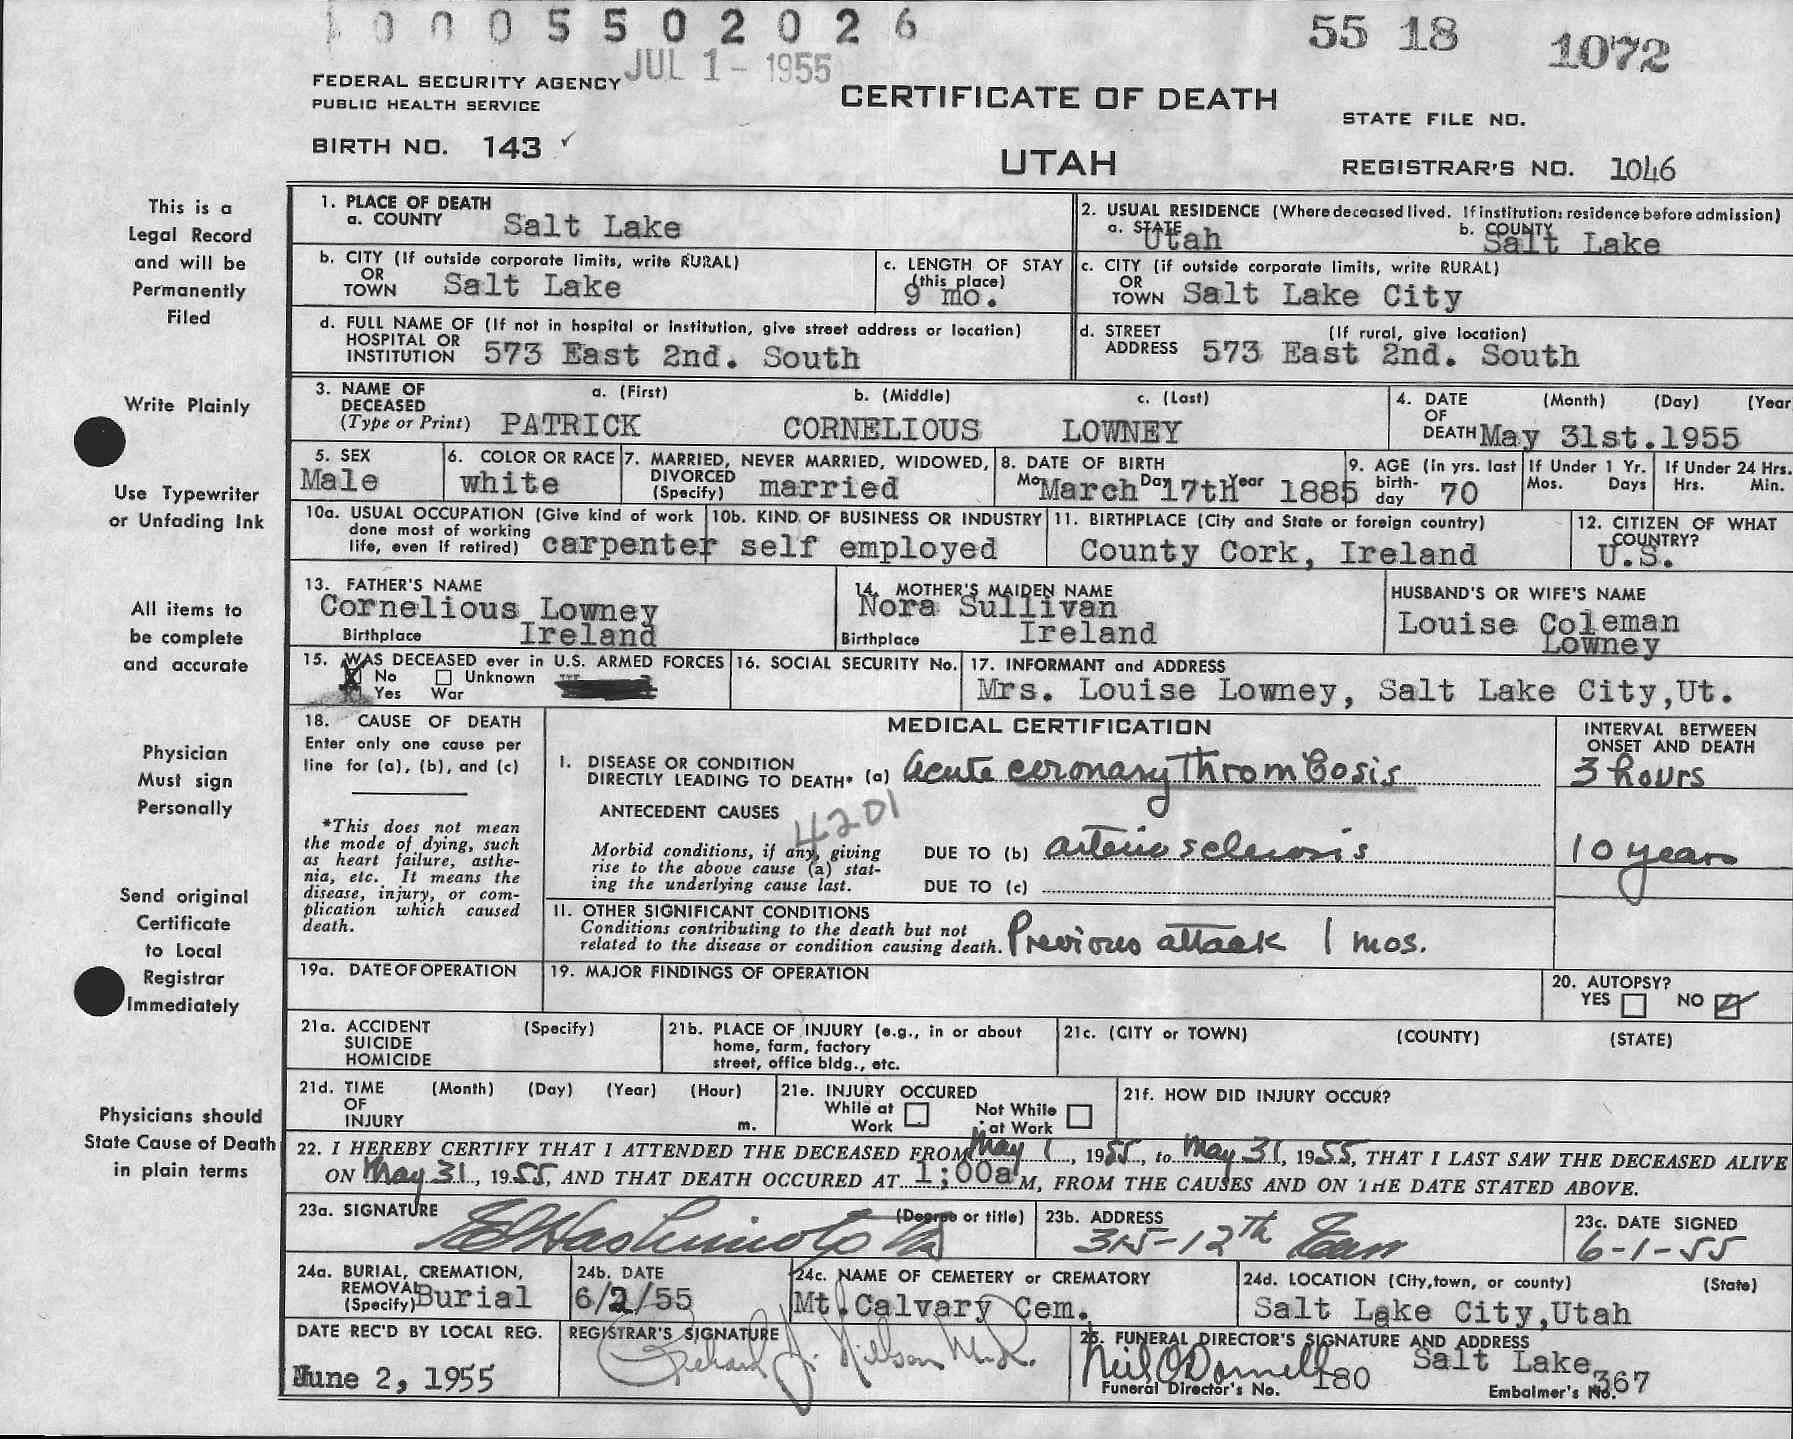 1000550 2026
55 18 1072
JUL 1 - 1955
FEDERAL SECURITY AGENCY
PUBLIC HEALTH SERVICE
CERTIFICATE OF DEATH
STATE FILE NO.
BIRTH NO. 143
UTAH
REGISTRAR'S NO. 1046
This is a
Legal Record
and will be
Permanently
Filed
Write Plainly
Use Typewriter
or Unfading Ink
All items to
be complete
and accurate
Physician
Must sign
Personally
Send original
Certificate
to Local
Registrar
Immediately
Physicians should
State Cause of Death
in plain terms
1. PLACE OF DEATH
a. COUNTY Salt Lake
2. USUAL RESIDENCE (Where deceased lived. If institution: residence before admission)
a. STATE Utah b. COUNTY Salt Lake
b. CITY (If outside corporate limits, write RURAL)
OR
TOWN Salt Lake
c. LENGTH OF STAY
(this place)
9 mo.
c. CITY (if outside corporate limits, write RURAL)
OR
TOWN Salt Lake City
d. FULL NAME OF (If not in hospital or institution, give street address or location)
HOSPITAL OR
INSTITUTION 573 East 2nd. South
d. STREET (If rural, give location)
ADDRESS 573 East 2nd. South
3. NAME OF a. (First) b. (Middle) c. (Last)
DECEASED
(Type or Print) PATRICK CORNELIOUS LOWNEY
4. DATE (Month) (Day) (Year
OF
DEATH May 31st.1955
5. SEX
Male
6. COLOR OR RACE
white
7. MARRIED, NEVER MARRIED, WIDOWED,
DIVORCED
(Specify) married
8. DATE OF BIRTH
Mo. Day Year
March 17th 1885
9. AGE (in yrs. last
birth-
day 70
If Under 1 Yr.
Mos. Days
If Under 24 Hrs.
Hrs. Min.
10a. USUAL OCCUPATION (Give kind of work
done most of working
life, even if retired) carpenter
10b. KIND OF BUSINESS OR INDUSTRY
self employed
11. BIRTHPLACE (City and State or foreign country)
County Cork, Ireland
12. CITIZEN OF WHAT
COUNTRY?
U.S.
13. FATHER'S NAME
Cornelious Lowney
Birthplace Ireland
14. MOTHER'S MAIDEN NAME
Nora Sullivan
Birthplace Ireland
HUSBAND'S OR WIFE'S NAME
Louise Coleman
Lowney
15. WAS DECEASED ever in U.S. ARMED FORCES
No Unknown
Yes War
16. SOCIAL SECURITY No.
17. INFORMANT and ADDRESS
Mrs. Louise Lowney, Salt Lake City,Ut.
18. CAUSE OF DEATH
Enter only one cause per
line for (a), (b), and (c)
*This does not mean
the mode of dying, such
as heart failure, asthe-
nia, etc. It means the
disease, injury, or com-
plication which caused
death.
MEDICAL CERTIFICATION
INTERVAL BETWEEN
ONSET AND DEATH
I. DISEASE OR CONDITION
DIRECTLY LEADING TO DEATH* (a) acute coronary Thrombosis 3 hours
ANTECEDENT CAUSES
4201
Morbid conditions, if any, giving
rise to the above cause (a) stat-
ing the underlying cause last.
DUE TO (b) arterio sclerosis 10 years
DUE TO (c)
II. OTHER SIGNIFICANT CONDITIONS
Conditions contributing to the death but not
related to the disease or condition causing death. Previous attack 1 mos.
19a. DATE OF OPERATION
19. MAJOR FINDINGS OF OPERATION
20. AUTOPSY?
YES NO
21a. ACCIDENT (Specify)
SUICIDE
HOMICIDE
21b. PLACE OF INJURY (e.g., in or about
home, farm, factory
street, office bldg., etc.
21c. (CITY or TOWN) (COUNTY) (STATE)
21d. TIME (Month) (Day) (Year) (Hour)
OF
INJURY m.
21e. INJURY OCCURED
While at Work Not While at Work
21f. HOW DID INJURY OCCUR?
22. I HEREBY CERTIFY THAT I ATTENDED THE DECEASED FROM May 1, 1955, to May 31, 1955, THAT I LAST SAW THE DECEASED ALIVE
ON May 31, 1955, AND THAT DEATH OCCURED AT 1;00a M, FROM THE CAUSES AND ON THE DATE STATED ABOVE.
23a. SIGNATURE (Degree or title)
Hashimoto
23b. ADDRESS
315-12th East
23c. DATE SIGNED
6-1-55
24a. BURIAL, CREMATION,
REMOVAL
(Specify) Burial
24b. DATE
6/2/55
24c. NAME OF CEMETERY or CREMATORY
Mt.Calvary Cem.
24d. LOCATION (City,town, or county) (State)
Salt Lake City,Utah
DATE REC'D BY LOCAL REG.
June 2, 1955
REGISTRAR'S SIGNATURE
Richard J. Nelson M.D.
25. FUNERAL DIRECTOR'S SIGNATURE AND ADDRESS
Neil O'Donnell Salt Lake
Funeral Director's No. 180 Embalmer's No. 367